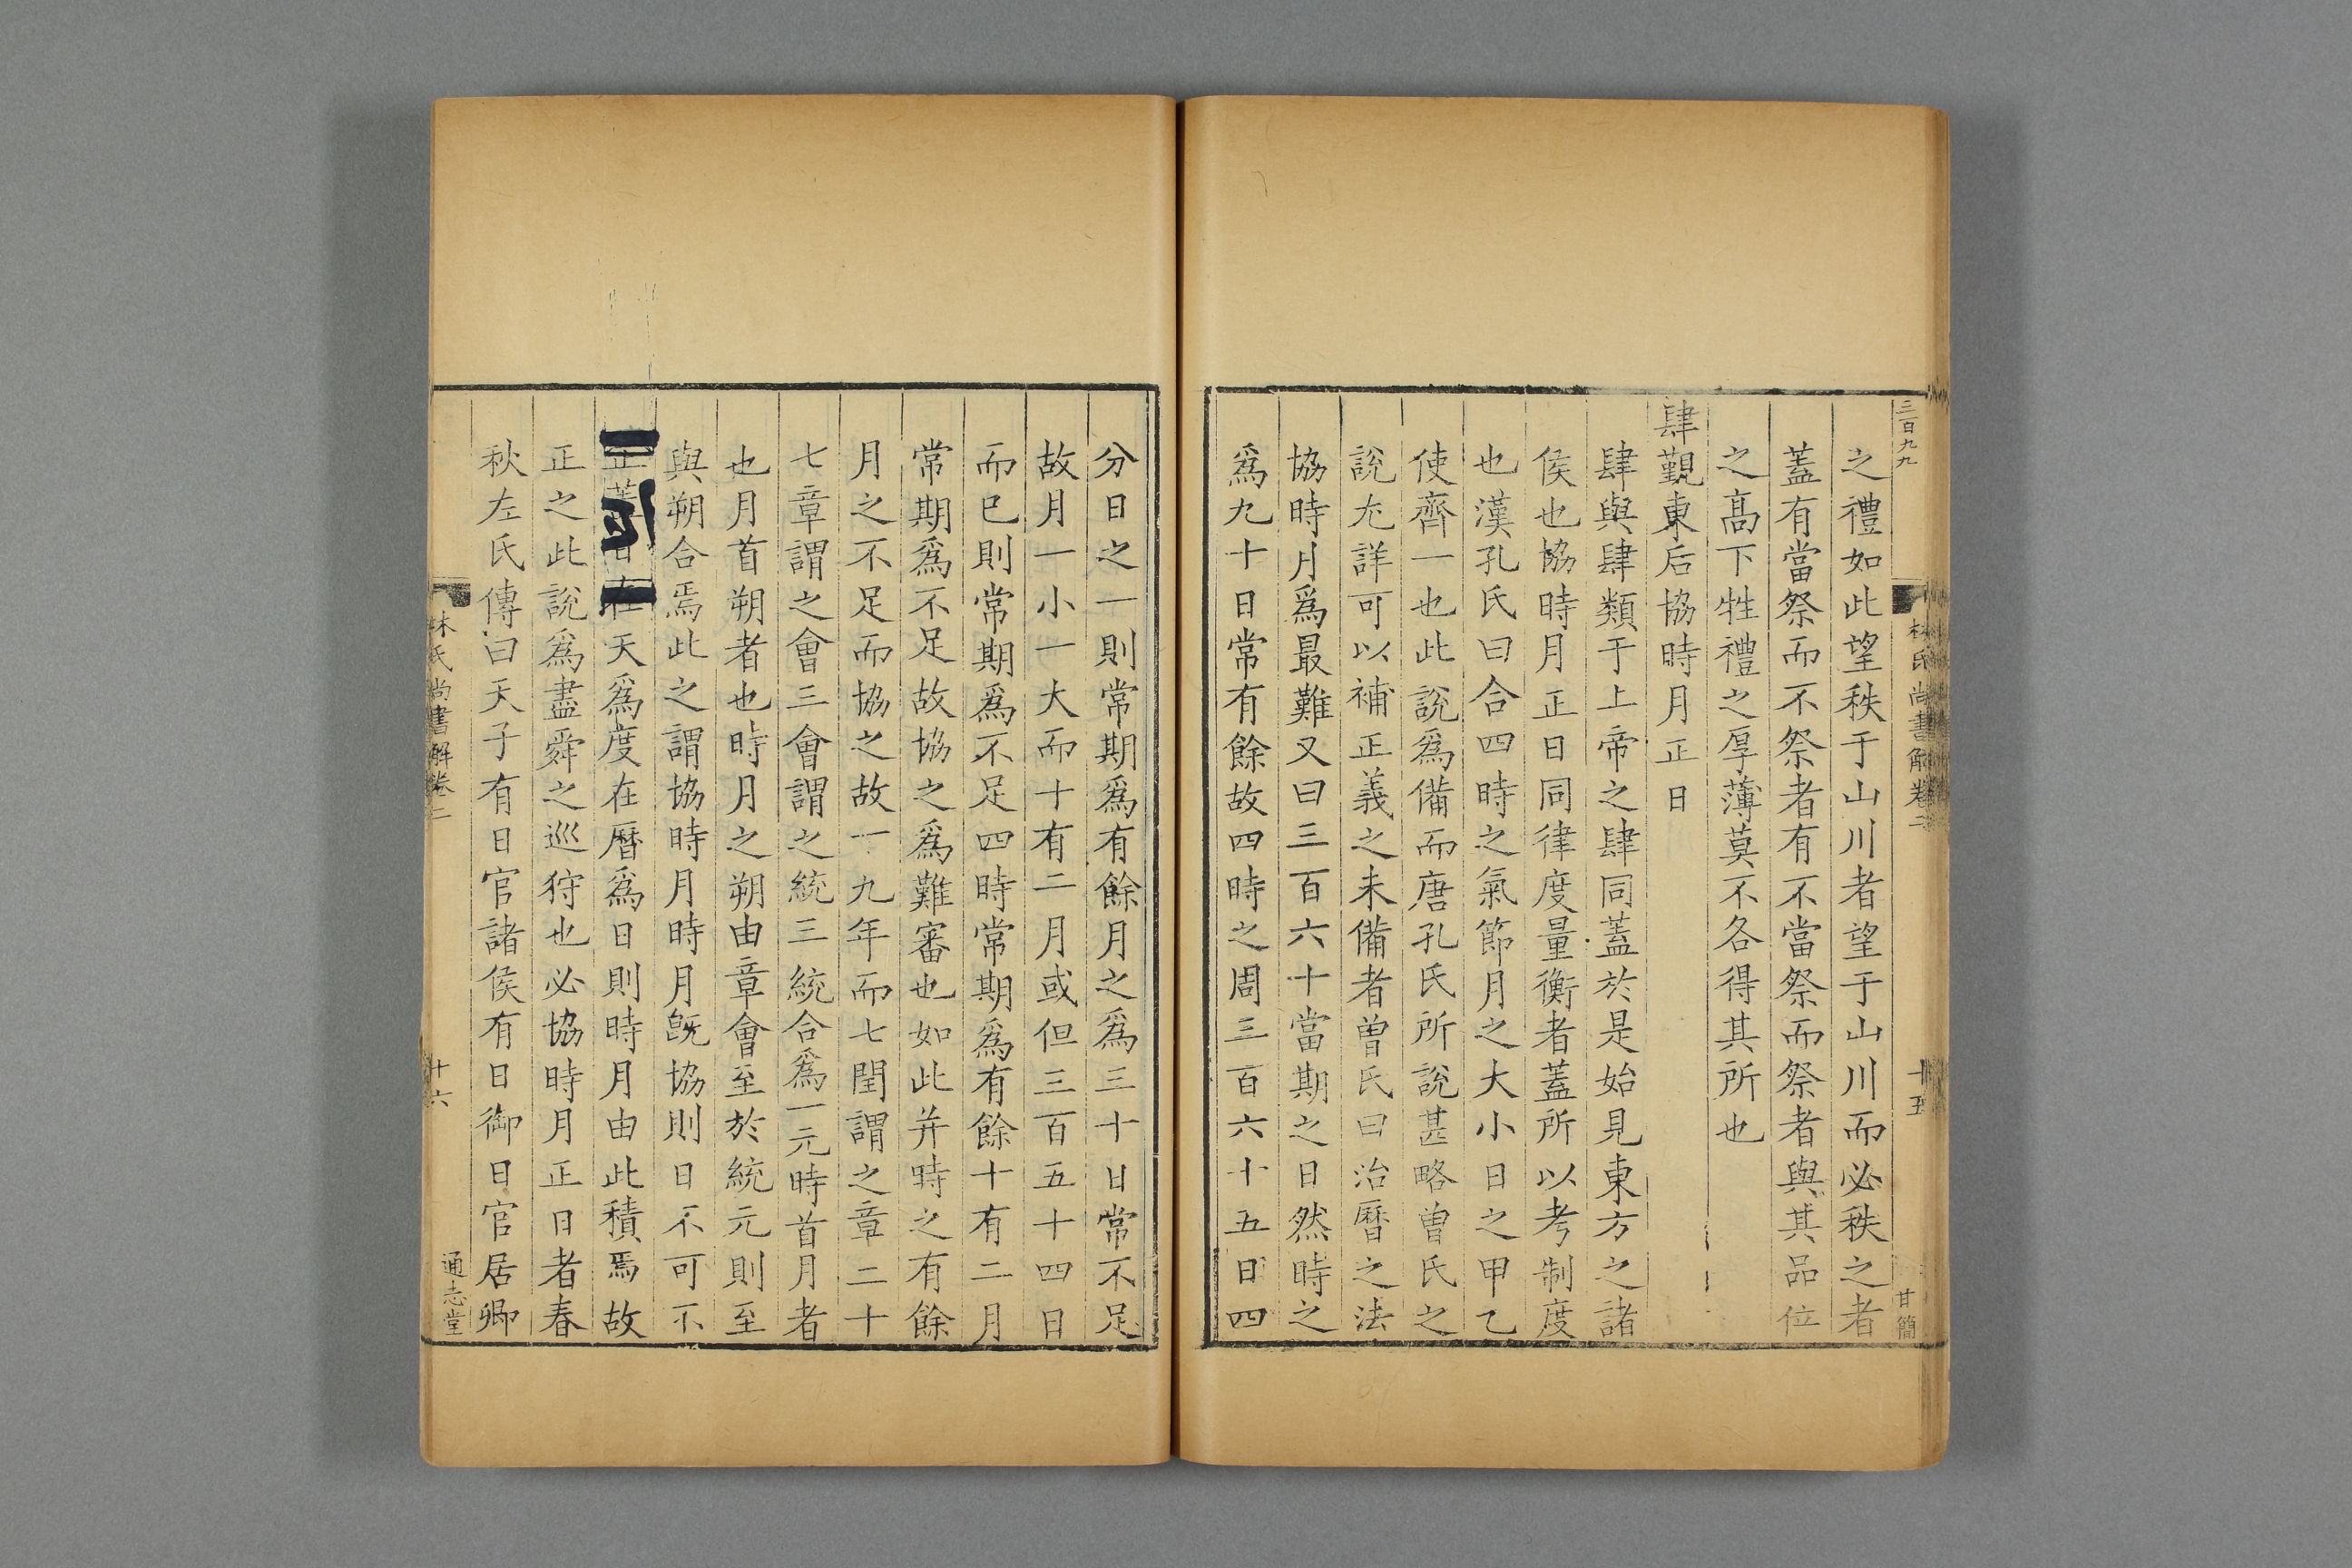 三百九九
林氏尚書解卷二
十五
甘簡
之禮如此望秩于山川者望于山川而必秩之者
蓋有當祭而不祭者有不當祭而祭者與其品位
之高下牲禮之厚薄莫不各得其所也
肆覲東后協時月正日
肆與肆類于上帝之肆同蓋於是始見東方之諸
侯也協時月正日同律度量衡者蓋所以考制度
也漢孔氏曰合四時之氣節月之大小日之甲乙
使齊一也此說爲備而唐孔氏所說甚略曾氏之
說尤詳可以補正義之未備者曾氏曰治曆之法
協時月爲最難又曰三百六十當期之日然時之
爲九十日常有餘故四時之周三百六十五日四
分日之一則常期爲有餘月之爲三十日常不足
故月一小一大而十有二月或但三百五十四日
而已則常期爲不足四時常期爲有餘十有二月
常期爲不足故協之爲難審也如此并時之有餘
月之不足而協之故一九年而七閏謂之章二十
七章謂之會三會謂之統三統合爲一元時首月者
也月首朔者也時月之朔由章會至於統元則至
與朔合焉此之謂協時月時月旣協則日不可不
正蓋日在天爲度在曆爲日則時月由此積焉故
正之此說爲盡舜之巡狩也必協時月正日者春
秋左氏傳曰天子有日官諸侯有日御日官居卿
林氏尚書解卷二
十六
通志堂